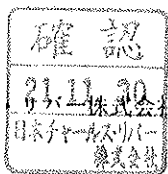 確認
21.11.30
株式会
日本チャールス・リバー
株式会社